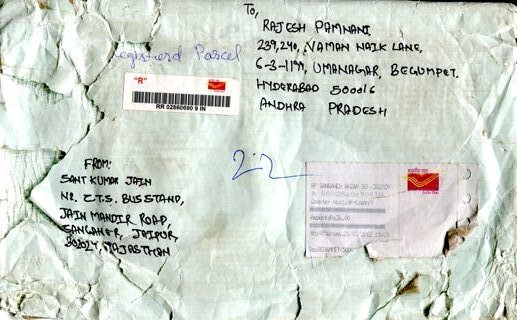 To,
RAJESH PAMNANI
239,240, NAMAN NAIK LANE,
6-3-1199, UMANAGAR, BEGUMPET.
HYDERABAD 500016
ANDHRA PRADESH
Registered Parcel
"R"
RR 02860690 9 IN
2:2
FROM:
SANT KUMAR JAIN
NR. C.T.S. BUSSTAND,
JAIN MANDIR ROAD,
SANGANER, JAIPUR,
302029, RAJASTHAN
SANGANER BAZAR SO
Counter No:1